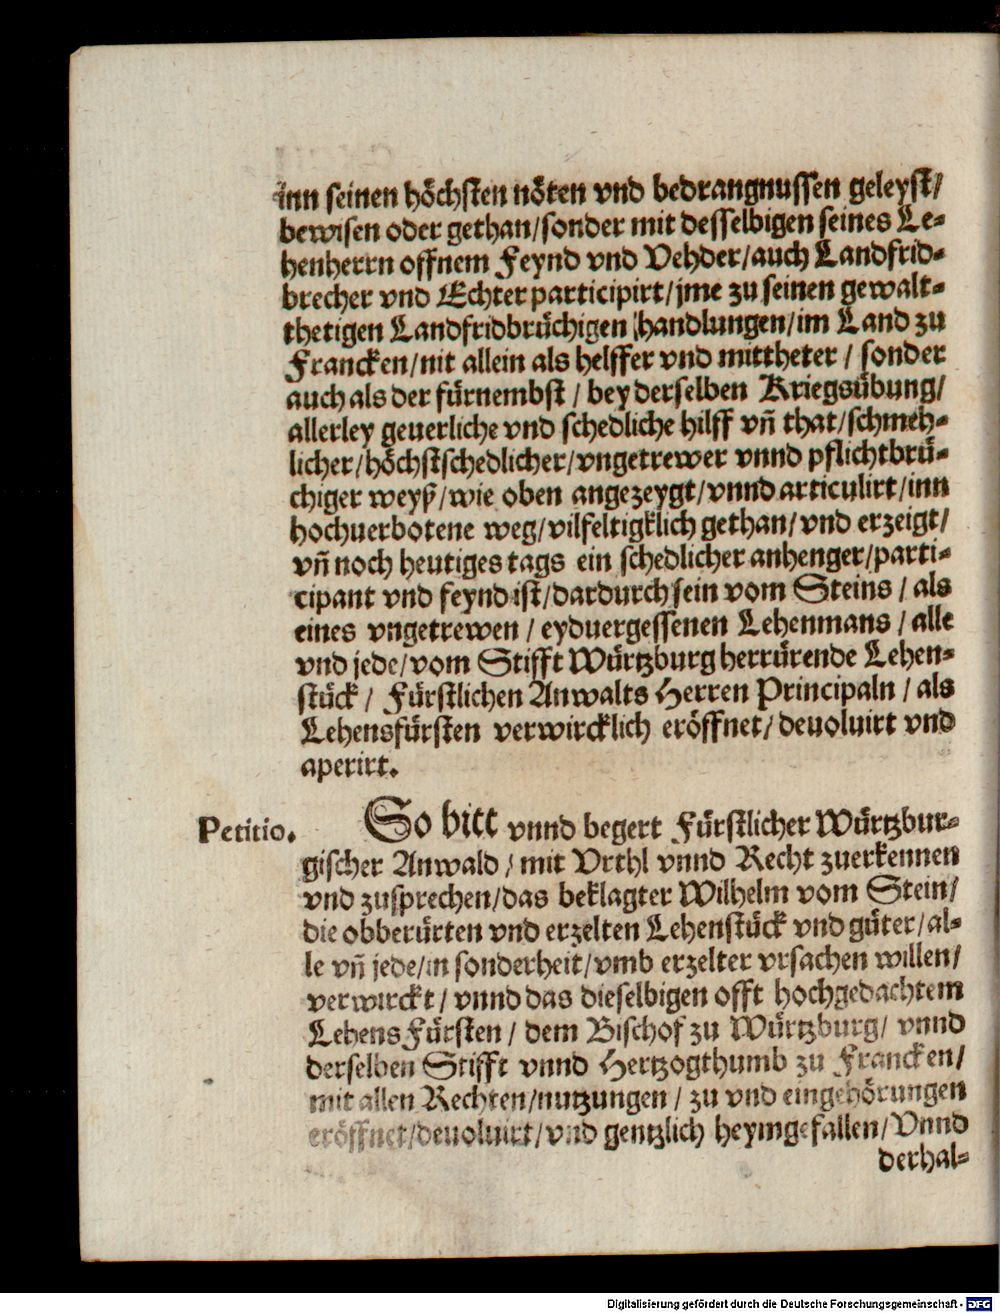 inn seinen höchsten nöten vnd bedrangnussen geleyst/
bewisen oder gethan/sonder mit desselbigen seines Le-
henherrn offnem Feynd vnd Vehder/auch Landfrid-
brecher vnd Echter participirt/jme zu seinen gewalt-
thetigen Landfridbrüchigen handlungen/im Land zu
Francken/nit allein als helffer vnd mittheter / sonder
auch als der fürnembst / bey derselben Kriegsübung/
allerley geuerliche vnd schedliche hilff vñ that/schmeh-
licher/höchstschedlicher/vngetrewer vnnd pflichtbrü-
chiger weyß/wie oben angezeygt/vnnd articulirt/inn
hochuerbotene weg/vilfeltigklich gethan/vnd erzeigt/
vñ noch heutiges tags ein schedlicher anhenger/parti-
cipant vnd feynd ist/dardurch sein vom Steins / als
eines vngetrewen / eyduergessenen Lehenmans / alle
vnd jede/vom Stifft Würtzburg herrürende Lehen-
stück / Fürstlichen Anwalts Herren Principaln / als
Lehensfürsten verwircklich eröffnet/deuoluirt vnd
aperirt.
Petitio. So bitt vnnd begert Fürstlicher Würtzbur-
gischer Anwald / mit Vrthl vnnd Recht zuerkennen
vnd zusprechen/das beklagter Wilhelm vom Stein/
die obberürten vnd erzelten Lehenstück vnd güter/al-
le vñ jede/in sonderheit/vmb erzelter vrsachen willen/
verwirckt / vnnd das dieselbigen offt hochgedachtem
Lehens Fürsten / dem Bischof zu Würtzburg/ vnnd
derselben Stifft vnnd Hertzogthumb zu Francken/
mit allen Rechten/nutzungen / zu vnd eingehörungen
eröffnet/deuoluirt/vnd gentzlich heymgefallen/Vnnd
derhal-
Digitalisierung gefördert durch die Deutsche Forschungsgemeinschaft - DFG